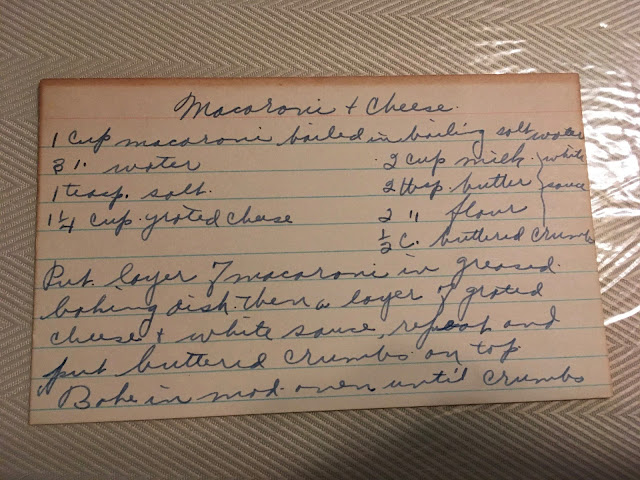 Macaroni + Cheese.
1 cup macaroni boiled in boiling salt water
3 " water
1 teasp. salt.
1 1/4 cup grated cheese
2 cup milk. } white
2 tbsp. butter } sauce
2 " flour
1/2 C. buttered crumbs
Put layer of macaroni in greased
baking dish. Then a layer of grated
cheese + white sauce, repeat and
put buttered crumbs on top
Bake in mod. oven until crumbs